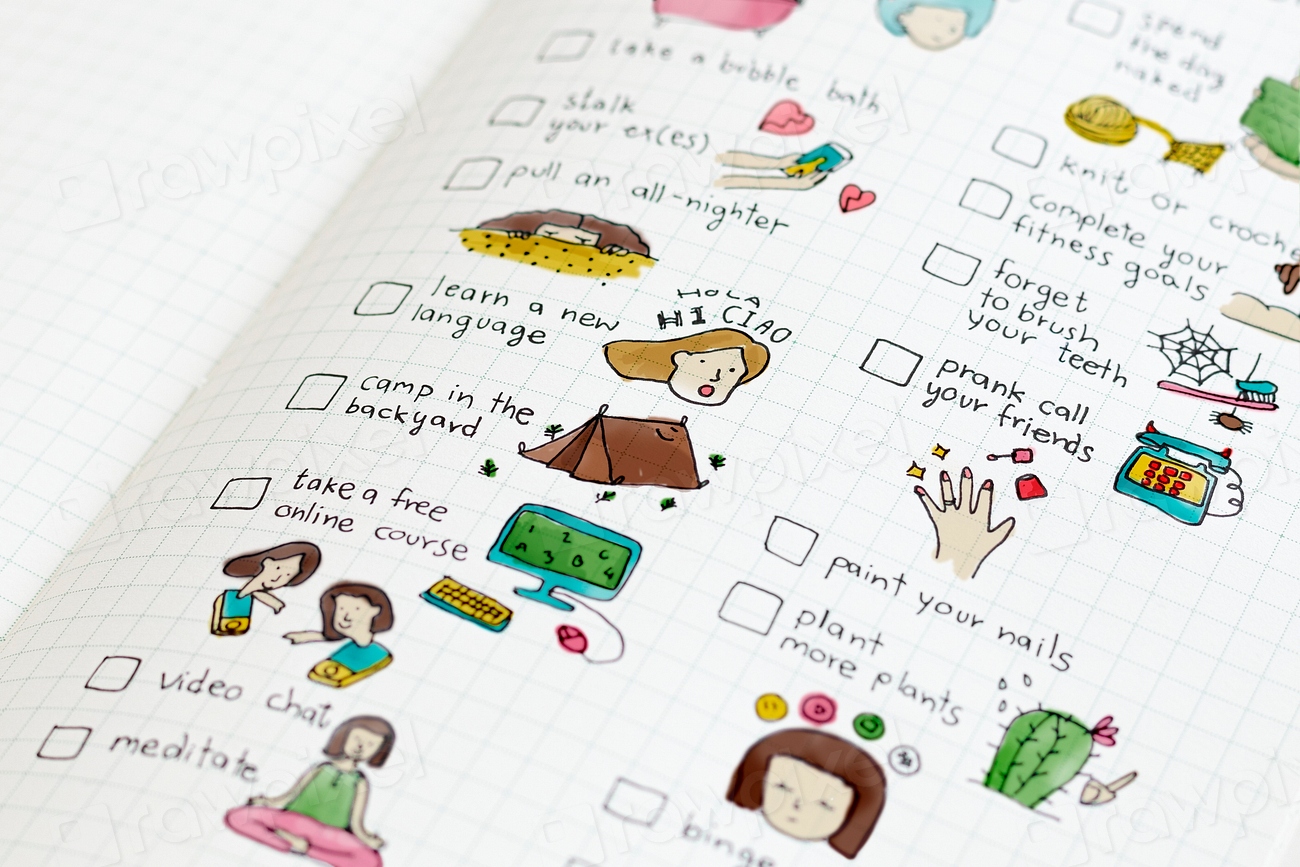 take a bubble bath
stalk
your ex(es)
pull an all-nighter
learn a new
language
HOLA
HI CIAO
camp in the
backyard
take a free
online course
1 2 C
A 3 B 4
video chat
meditate
spend
the day
naked
knit or croche
complete your
fitness goals
forget
to brush
your teeth
prank call
your friends
paint your nails
plant
more plants
binge
rawpixel
rawpixel
rawpixel